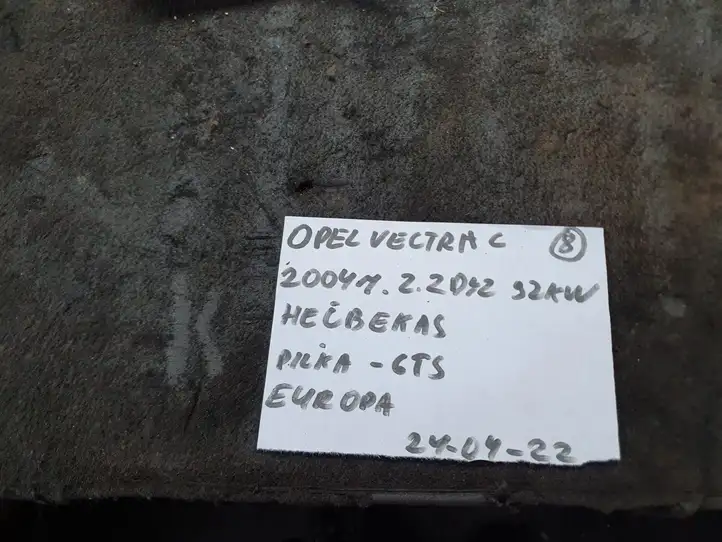 OPEL VECTRA C 8
2004M. 2.2DYZ 92KW
HEČBEKAS
PILKA - GTS
EUROPA
24-04-22